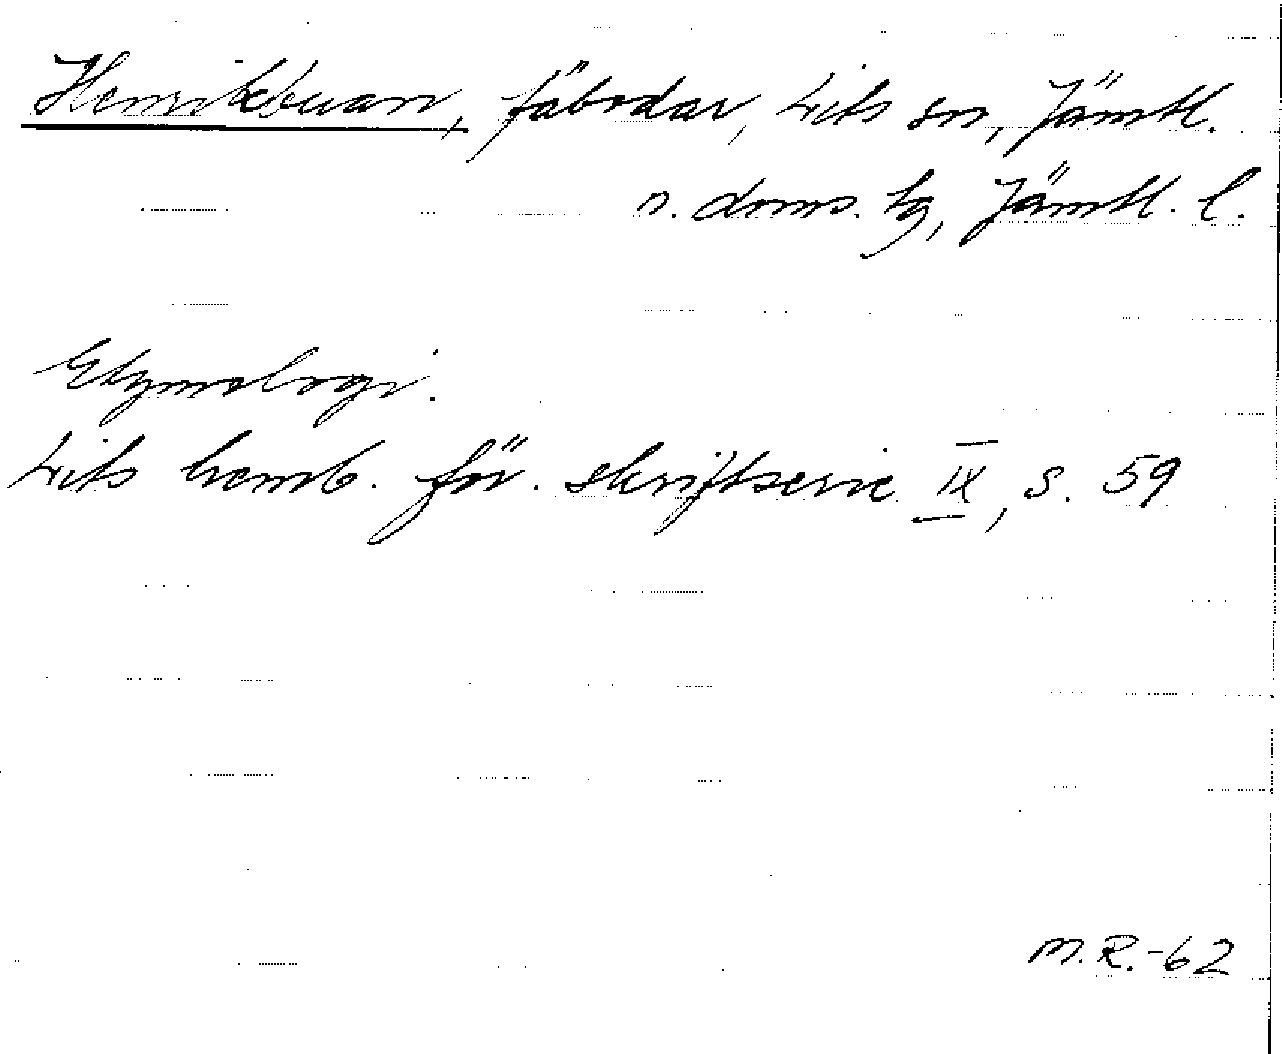 Henrikbuan, fäbodar, Lits sn, Jämtl.
n. doms. tg, Jämtl. l.
Etymologi.
Lits hemb. för. skriftserie IX, s. 59
M.R.-62